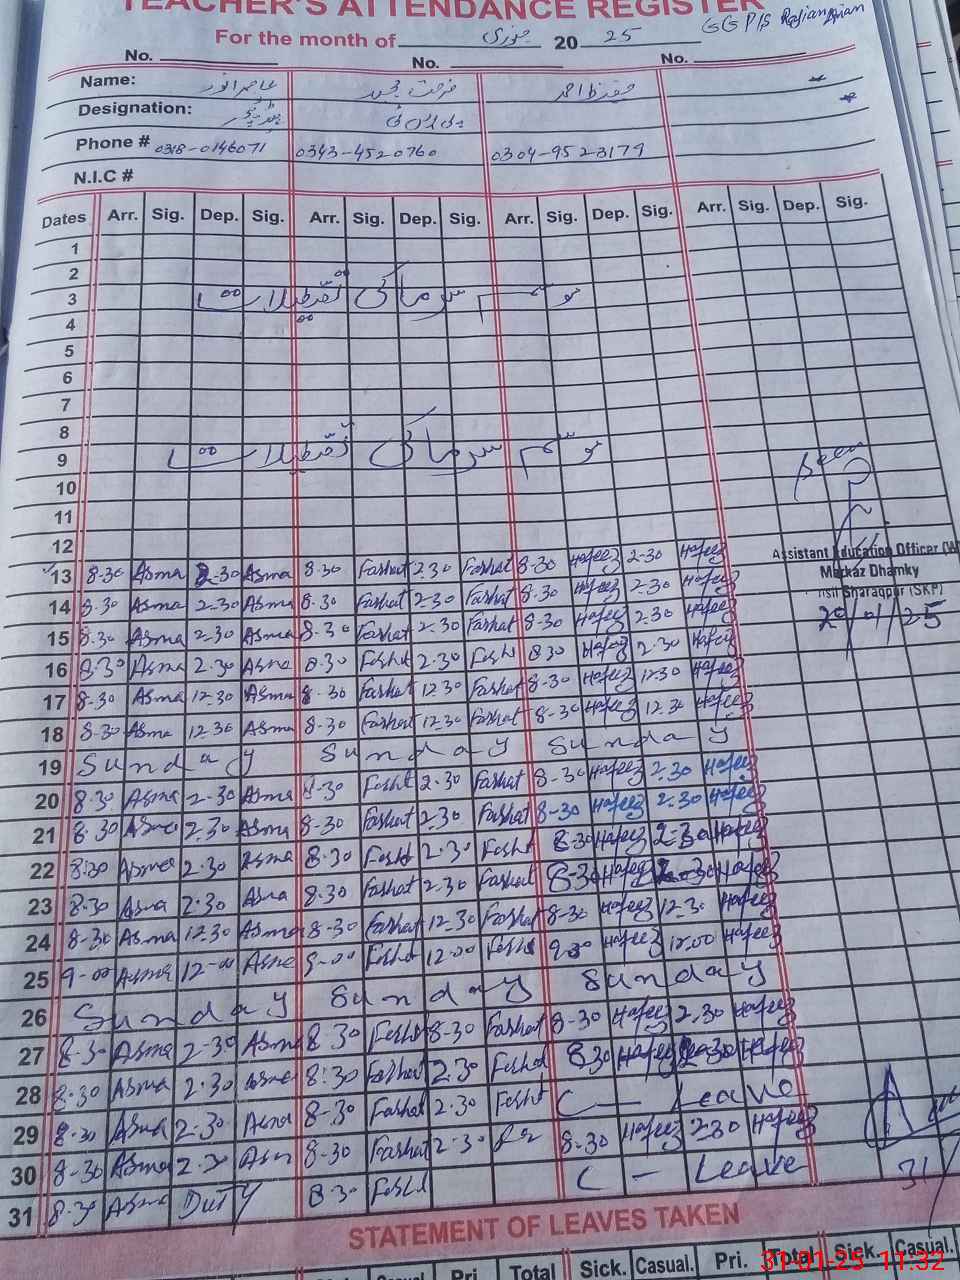 TEACHER'S ATTENDANCE REGISTER
For the month of جنوری 20 25 GGP/S
No. No. No.
Name: فرحت مجید
Designation:
Phone # 0318-0146071 0343-4520760 0304-9523179
N.I.C #
Dates Arr. Sig. Dep. Sig. Arr. Sig. Dep. Sig. Arr. Sig. Dep. Sig. Arr. Sig. Dep. Sig.
1
2
3 موسم سرما کی تعطیلات
4
5
6
7
8
9 موسم سرما کی تعطیلات
10
11
12
Seen
Assistant Education Officer (W
Markaz Dhamky
Sharaqpur (SKP)
29/01/25
13 8-30 Asma 2-30 Asma 8-30 Farhat 2-30 Farhat 8-30 Hafeez 2-30 Hafeez
14 8-30 Asma 2-30 Asma 8-30 Farhat 2-30 Farhat 8-30 Hafeez 2-30 Hafeez
15 8-30 Asma 2-30 Asma 8-30 Farhat 2-30 Farhat 8-30 Hafeez 2-30 Hafeez
16 8-30 Asma 2-30 Asma 8-30 Farhat 2-30 Farhat 8-30 Hafeez 2-30 Hafeez
17 8-30 Asma 12-30 Asma 8-30 Farhat 12-30 Farhat 8-30 Hafeez 12-30 Hafeez
18 8-30 Asma 12-30 Asma 8-30 Farhat 12-30 Farhat 8-30 Hafeez 12-30 Hafeez
19 Sunday Sunday Sunday
20 8-30 Asma 2-30 Asma 8-30 Farhat 2-30 Farhat 8-30 Hafeez 2-30 Hafeez
21 8-30 Asma 2-30 Asma 8-30 Farhat 2-30 Farhat 8-30 Hafeez 2-30 Hafeez
22 8:30 Asma 2-30 Asma 8-30 Farhat 2-30 Farhat 8-30 Hafeez 2-30 Hafeez
23 8-30 Asma 2-30 Asma 8-30 Farhat 2-30 Farhat 8-30 Hafeez 2-30 Hafeez
24 8-30 Asma 12-30 Asma 8-30 Farhat 12-30 Farhat 8-30 Hafeez 12-30 Hafeez
25 9-00 Asma 12-00 Asma 9-00 Farhat 12-00 Farhat 9-30 Hafeez 12-00 Hafeez
26 Sunday Sunday Sunday
27 8-30 Asma 2-30 Asma 8-30 Farhat 8-30 Farhat 8-30 Hafeez 2-30 Hafeez
28 8-30 Asma 2-30 Asma 8:30 Farhat 2-30 Farhat 8-30 Hafeez 2-30 Hafeez
29 8-30 Asma 2-30 Asma 8-30 Farhat 2-30 Farhat C — Leave
30 8-30 Asma 2-30 Asma 8-30 Farhat 2-30 8-30 Hafeez 2-30 Hafeez
31 8-30 Asma DUTY 8-30 Farhat C — Leave 31/
STATEMENT OF LEAVES TAKEN
Sick. Casual. Pri. Total Sick. Casual. Pri. Total Sick. Casual.
31-01-25 11:32